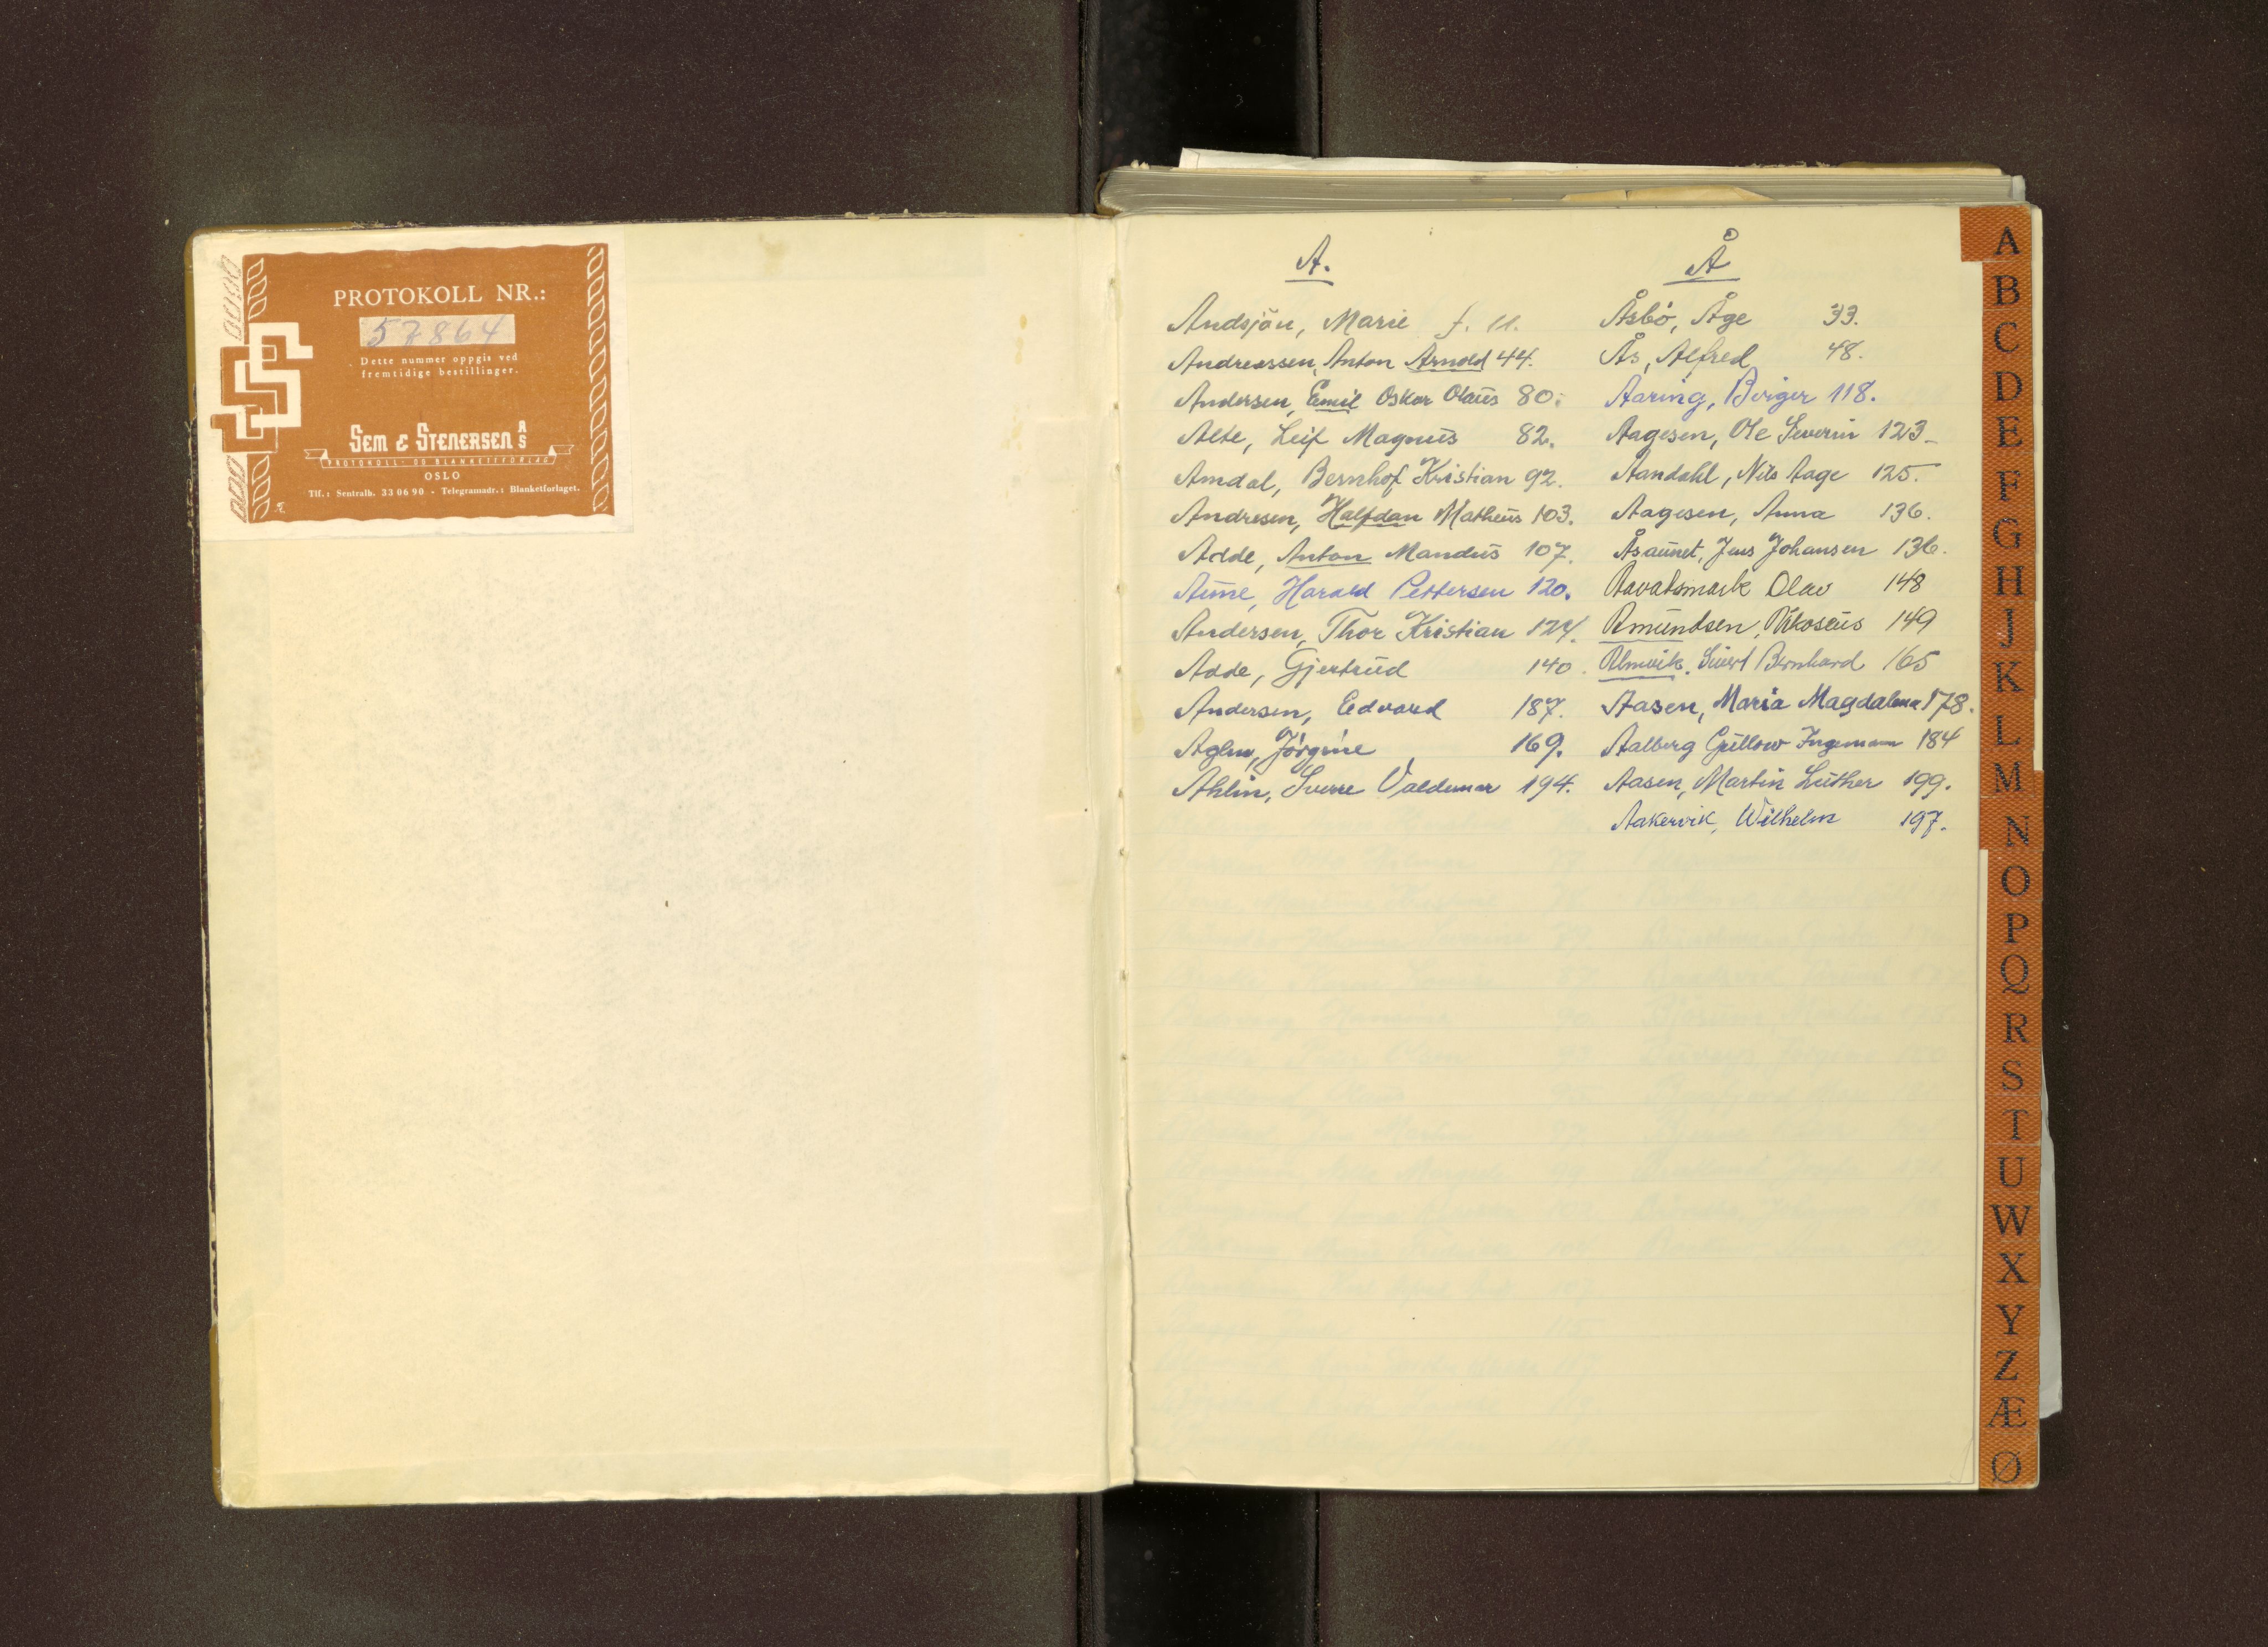 PROTOKOLL NR.:
57864
Dette nummer oppgis ved
fremtidige bestillinger.
SEM & STENERSEN A/S
PROTOKOLL- OG BLANKETTFORLAG
OSLO
Tlf.: Sentralb. 33 06 90 - Telegramadr.: Blanketforlaget.
A.
Andsjön, Marie f. 11.
Andreassen, Anton Arnold 44.
Andersen, Emil Oskar Olaus 80.
Alte, Leif Magnus 82.
Amdal, Bernhof Kristian 92.
Andresen, Halfdan Matheus 103.
Adde, Anton Mandus 107.
Aune, Harald Pettersen 120.
Andersen, Thor Kristian 124.
Adde, Gjertrud 140.
Andersen, Edvard 187.
Aglen, Jörgine 169.
Ahlin, Sverre Valdemar 194.
Å
Åsbö, Åge 33.
Ås, Alfred 48.
Aaring, Birger 118.
Aagesen, Ole Severin 123.
Aandahl, Nils Aage 125.
Aagesen, Anna 136.
Åsaunet, Jens Johansen 136.
Aavatsmark Olav 148
Amundsen, 149
Almvik, Sivert Bernhard 165
Aasen, Maria Magdalena 178.
Aalberg Gullow Ingemann 184
Aasen, Martin Luther 199.
Aakervik, Wilhelm 197.
A
B
C
D
E
F
G
H
J
K
L
M
N
O
P
Q
R
S
T
U
W
X
Y
Z
Æ
Ø